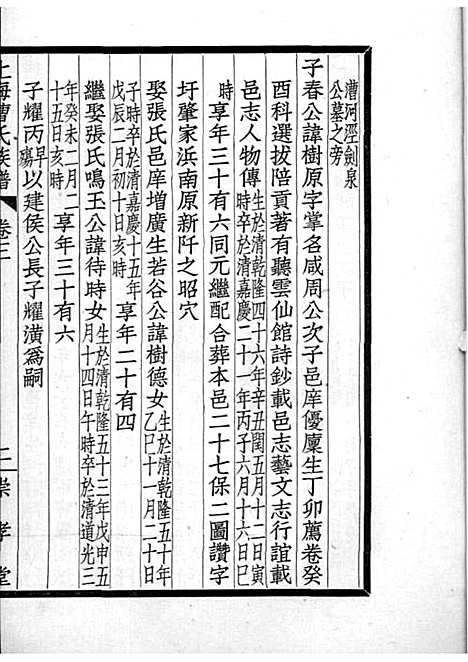 漕河涇劍泉
公墓之旁
子春公諱樹原字掌名咸周公次子邑庠優廩生丁卯薦卷癸
酉科選拔陪貢著有聽雲仙館詩鈔載邑志藝文志行誼載
邑志人物傳
生於清乾隆四十六年辛丑閏五月十二日寅
時卒於清嘉慶二十一年丙子六月十六日巳
時 享年三十有六同元繼配合葬本邑二十七保二圖讚字
圩肇家浜南原新阡之昭穴
娶張氏邑庠增廣生若谷公諱樹德女
生於清乾隆五十年
乙巳十一月二十日
子時卒於清嘉慶十五年
戊辰二月初十日亥時
享年二十有四
繼娶張氏鳴玉公諱待時女
生於清乾隆五十三年戊申五
月十四日午時卒於清道光三
年癸未二月二
十五日亥時
享年三十有六
子耀丙早殤以建侯公長子耀潢爲嗣
上海曹氏族譜 卷三 二 崇孝堂